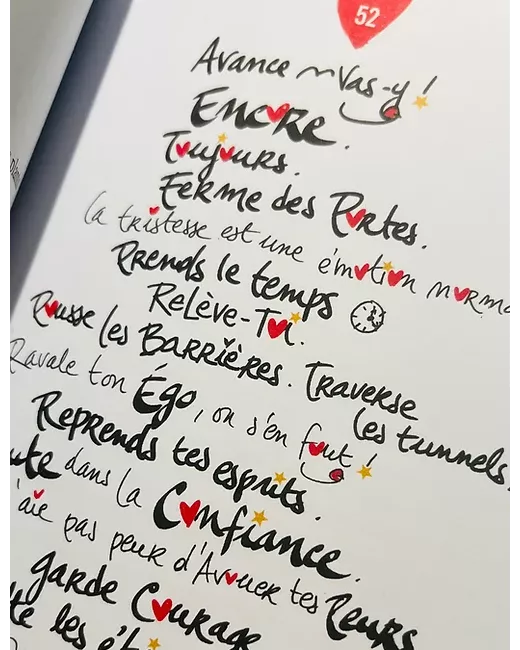 52
Avance ~ Vas-y !
Encore.
Toujours.
Ferme des Portes.
La tristesse est une émotion
Prends le temps
Relève-Toi.
Pousse les Barrières. Traverse
les tunnels.
Ravale ton Égo, on s'en fout !
Reprends tes esprits.
dans la Confiance.
pas peur d'Avouer tes Peurs
Garde Courage
les